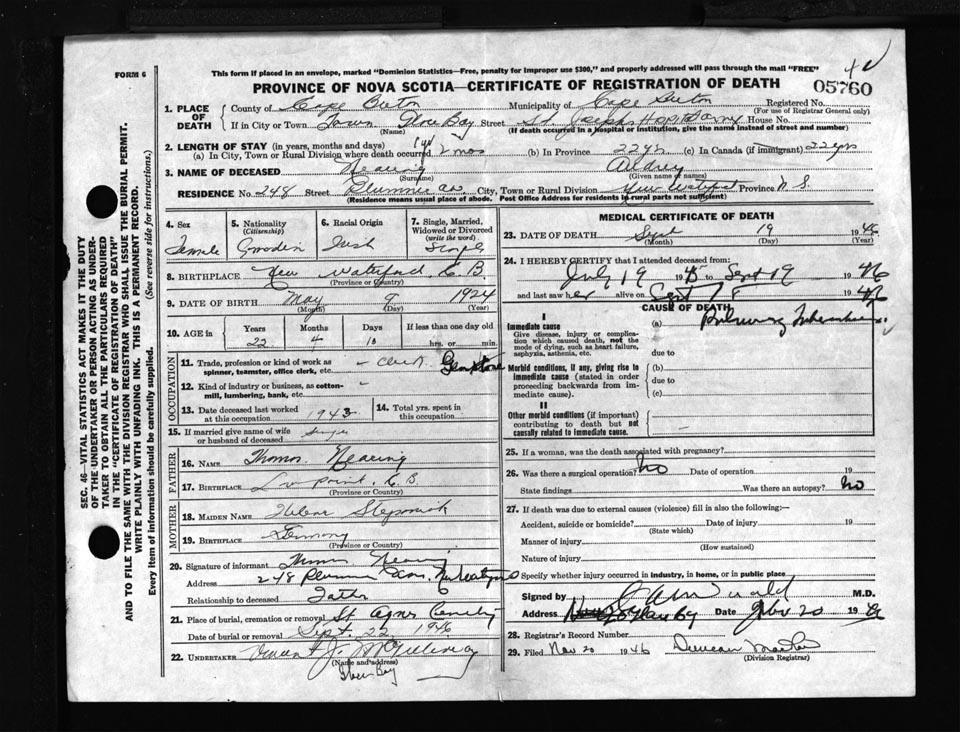 FORM 6
This form if placed in an envelope, marked "Dominion Statistics—Free, penalty for improper use $300," and properly addressed will pass through the mail "FREE"
05760
PROVINCE OF NOVA SCOTIA—CERTIFICATE OF REGISTRATION OF DEATH
1. PLACE OF DEATH { County of Cape Breton Municipality of Cape Breton Registered No.
(For use of Registrar General only)
If in City or Town Town Glace Bay Street St. Joseph Hospital House No.
(Name) (If death occurred in a hospital or institution, give the name instead of street and number)
2. LENGTH OF STAY (in years, months and days)
(a) In City, Town or Rural Division where death occurred 1 yr 2 mos (b) In Province 22 yrs (c) In Canada (if immigrant) 22 yrs
3. NAME OF DECEASED Nearing Audrey
(Surname) (Given name or names)
RESIDENCE No. 248 Street Plummer Ave City, Town or Rural Division New Waterford Province N.S.
(Residence means usual place of abode. Post Office Address for residents in rural parts not sufficient)
4. Sex Female
5. Nationality (Citizenship) Canadian
6. Racial Origin Irish
7. Single, Married, Widowed or Divorced (write the word) Single
8. BIRTHPLACE New Waterford, C.B.
(Province or Country)
9. DATE OF BIRTH May 9 1924
(Month) (Day) (Year)
10. AGE in Years Months Days If less than one day old
22 4 10 hrs. or min.
OCCUPATION
11. Trade, profession or kind of work as spinner, teamster, office clerk, etc. - Clerk
12. Kind of industry or business, as cotton-mill, lumbering, bank, etc. -
13. Date deceased last worked at this occupation 1943
14. Total yrs. spent in this occupation
15. If married give name of wife or husband of deceased Single
FATHER
16. NAME Thomas Nearing
17. BIRTHPLACE Low Point, C.B.
(Province or Country)
MOTHER
18. MAIDEN NAME Helena
19. BIRTHPLACE Germany
(Province or Country)
20. Signature of informant Thomas Nearing
Address 248 Plummer Ave. New Waterford
Relationship to deceased Father
21. Place of burial, cremation or removal St Agnes Cemetery
Date of burial or removal Sept. 22 1946
22. UNDERTAKER Vincent J.
(Name and address)
Glace Bay
MEDICAL CERTIFICATE OF DEATH
23. DATE OF DEATH Sept 19 1946
(Month) (Day) (Year)
24. I HEREBY CERTIFY that I attended deceased from:
July 19 1945 to Sept 19 1946
and last saw her alive on Sept 1946
CAUSE OF DEATH
I
Immediate cause
Give disease, injury or complication which caused death, not the mode of dying, such as heart failure, asphyxia, asthenia, etc.
(a) Pulmonary Tuberculosis
due to
Morbid conditions, if any, giving rise to immediate cause (stated in order proceeding backwards from immediate cause).
(b)
due to
(c)
II
Other morbid conditions (if important) contributing to death but not causally related to immediate cause.
25. If a woman, was the death associated with pregnancy?
26. Was there a surgical operation? No Date of operation 19
State findings Was there an autopsy? No
27. If death was due to external causes (violence) fill in also the following:—
Accident, suicide or homicide? Date of injury 19
(State which)
Manner of injury
(How sustained)
Nature of injury
Specify whether injury occurred in industry, in home, or in public place
Signed by M.D.
Address Glace Bay Date Nov 20 19
28. Registrar's Record Number
29. Filed Nov 20 1946 Duncan
(Division Registrar)
SEC. 46—VITAL STATISTICS ACT MAKES IT THE DUTY
OF THE UNDERTAKER OR PERSON ACTING AS UNDER-
TAKER TO OBTAIN ALL THE PARTICULARS REQUIRED
IN THE "CERTIFICATE OF REGISTRATION OF DEATH"
AND TO FILE THE SAME WITH THE DIVISION REGISTRAR WHO SHALL ISSUE THE BURIAL PERMIT.
WRITE PLAINLY WITH UNFADING INK. THIS IS A PERMANENT RECORD.
Every item of information should be carefully supplied. (See reverse side for instructions.)